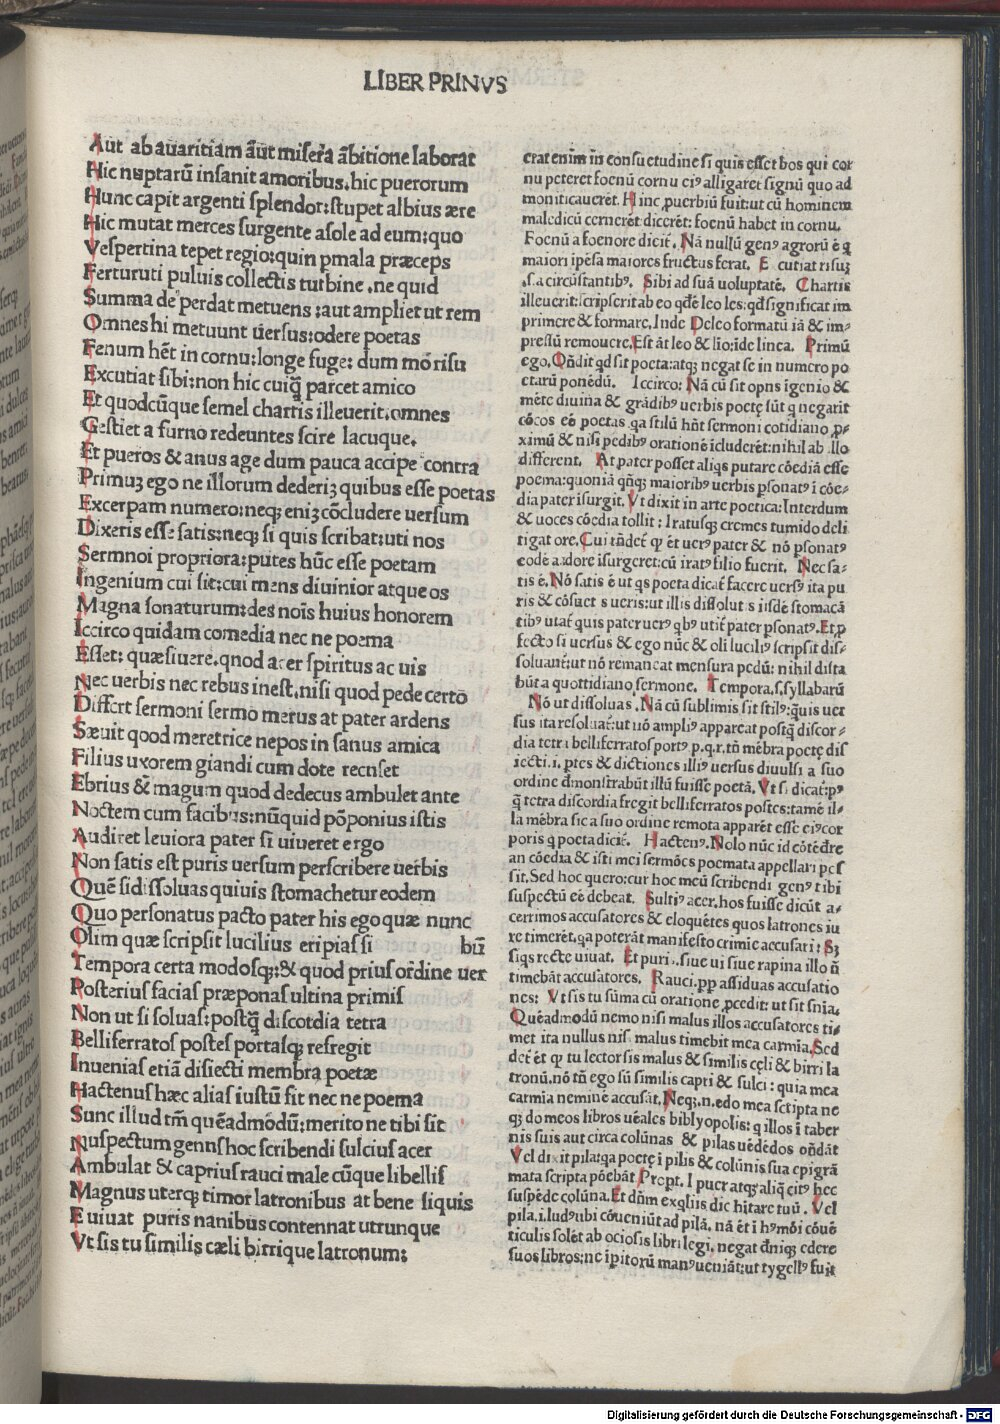 LIBER PRINVS
Aut ab auaritiam aut̃ misera ãbitione laborat
Hic nuptarũ insanit amoribus. hic puerorum
Hunc capit argenti splendor: stupet albius ære
Hic mutat merces surgente a sole ad eum: quo
Vespertina tepet regio: quin pmala præceps
Ferturuti puluis collectis turbine. ne quid
Summa de perdat metuens: aut ampliet ut rem
Omnes hi metuunt uersus: odere poetas
Fenum hẽt in cornu: longe fuge: dum mõ risu
Excutiat sibi: non hic cuiq̃ parcet amico
Et quodcũque semel chartis illeuerit. omnes
Gestiet a furno redeuntes scire lacuque.
Et pueros & anus age dum pauca accipe contra
Primuꝫ ego ne illorum dederiꝫ quibus esse poetas
Excerpam numero: neqꝫ eniꝫ cõcludere uersum
Dixeris esse satis: neqꝫ si quis scribat: uti nos
Sermnoi propriora: putes hũc esse poetam
Ingenium cui sit: cui mens diuinior atque os
Magna sonaturum: des noĩs huius honorem
Iccirco quidam comedia nec ne poema
Esset: quæsiuere. qnod acer spiritus ac uis
Nec uerbis nec rebus inest. nisi quod pede certo
Differt sermoni sermo merus at pater ardens
Sæuit qood meretrice nepos in sanus amica
Filius uxorem giandi cum dote recuset
Ebrius & magum quod dedecus ambulet ante
Noctem cum facibus: nũquid põponius istis
Audiret leuiora pater si uiueret ergo
Non satis est puris uersum perscribere uerbis
Quẽ si dissoluas quiuis stomachetur eodem
Quo personatus pacto pater his ego quæ nunc
Olim quæ scripsit lucilius eripias si bũ
Tempora certa modosqꝫ: & quod prius ordine uer
Posterius facias præponas ultina primis
Non ut si soluas: postq̃ discotdia tetra
Belliferratos postes portasqꝫ refregit
Inuenias etiã disiecti membra poetæ
Hactenus hæc alias iustũ sit nec ne poema
Sunc illud tm̃ quẽadmodũ: merito ne tibi sit
Nuspectum genns hoc scribendi sulcius acer
Ambulat & caprius rauci male cũque libellis
Magnus uterqꝫ timor latronibus at bene siquis
Euiuat puris nanibus contennat utrunque
Vt sis tu similis cæli birrique latronum:
erat enim in consuetudine si quis esset bos qui cor
nu peteret foenũ cornu eiꝰ alligaret signũ quo ad
moniti cauerẽt. Hinc ꝓuerbiũ fuit: ut cũ hominem
maledicũ cernerẽt dicerẽt: foenũ habet in cornu.
Foenũ a foenore diciť. Nã nullũ genꝰ agrorũ ẽ q̃
maiori ipẽsa maiores fructus ferat. E cutiat risuꝫ
.s. a circũstantibꝰ. Sibi ad suã uoluptatẽ. Chartis
illeuerit: scripserit ab eo qđ ẽ leo les: qđ significat im
primere & formare. Inde Deleo formatũ iã & im-
pressũ remouere. Est āt leo & lio: ide linea. Primũ
ego. Oñdit qđ sit poeta: atqꝫ negat se in numero po
etarũ ponẽdũ. Iccirco: Nã cũ sit opns igenio &
mẽte diuina & grãdibꝰ uerbis poetę sũt q negarit
cõcos eẽ poetas qa stilũ hñt sermoni cotidiano ꝓ-
ximũ & nisi pedibꝰ orationẽ icluderẽt: nihil ab illo
different. At pater posset aliqs putare cõediã esse
poema: quoniã qñqꝫ maioribꝰ uerbis psonatꝰ i cõe-
dia pater isurgit. Vt dixit in arte poetica: Interdum
& uoces cõedia tollit: Iratusqꝫ cremes tumido deli
tigat ore. Cui rñdeť qꝫ ẽt uerꝰ pater & nõ psonatꝰ
eodẽ ardore isurgeret: cũ iratꝰ filio fuerit. Nec sa-
tis ẽ. Nõ satis ẽ ut qs poeta dicať facere uersꝰ ita pu
ris & cõsuet s ueris: ut illis dissolut s iisdẽ stomacã
tibꝰ utať quis pater uerꝰ qbꝰ utiť pater psonatꝰ. Et ꝓ
fecto si uersus & ego nũc & oli luciliꝰ scripsit dis-
soluanť: ut nõ remaneat mensura pedũ: nihil dista
bũt a quottidiano sermone. Tempora. s. syllabarũ
Nõ ut dissoluas. Nã cũ sublimis sit stilꝰ: quis uer
sus ita resoluať: ut nõ ampliꝰ appareat postq̃ discor-
dia tetri belliferratos portꝰ p.q.r. tñ mẽbra poetę dis
iecti. i. ptes & dictiones illiꝰ uersus diuulsi a suo
ordine đmonstrabũt illũ fuisse poetã. Vt si dicať: pꝰ
q̃ tetra discordia fregit belliferratos postes: tamẽ il-
la mẽbra sic a suo ordine remota apparẽt esse eiꝰ cor
poris q poeta diciť. Hactenꝰ. Nolo nũc id cõtẽdere
an cõedia & isti mei sermões poemata appellari pos
sit. Sed hoc quero: cur hoc meũ scribendi genꝰ tibi
suspectũ eẽ debeat. Sultiꝰ acer. hos fuisse dicũt a-
cerrimos accusatores & eloquẽtes quos latrones iu
re timerẽt. qa poterãt manifesto crimie accusari: Sꝫ
siqs recte uiuat. Et puri. siue ui siue rapina illo ñ
timebãt accusatores. Rauci. pp assiduas accusatio
nes: Vt sis tu sũma cũ oratione ꝓcedit: ut sit snia.
Quẽadmodũ nemo nisi malus illos accusatores ti-
met ita nullus nisi malus timebit mea carmia. Sed
deť ẽt qꝫ tu lector sis malus & similis cęli & birri la
tronũ. nõ tñ ego sũ similis capri & sulci: quia mea
carmia neminẽ accusãt. Neqꝫ. n. edo mea sctipta ne
qꝫ do meos libros uẽales biblyopolis: q illos i taber
nis suis aut circa colũnas & pilas uẽdẽdos oñdãt
Vel dixit pila: qa poetę i pilis & colũnis sua epigrã
mata scripta põebãt Propt. I puer atqꝫ aliq̃ citꝰ hec
suspẽde colũna. Et dñm exqliis dic hitare tuũ. Vel
pila. i. ludꝰ ubi cõueniũt ad pilã. nã ẽt i hꝰmõi cõuẽ
ticulis solẽt ab ociosis libri legi. negat đniqꝫ edere
suos libros: ne ipitorũ manꝰ ueniãt: ut tygellꝰ fuit
Digitalisierung gefördert durch die Deutsche Forschungsgemeinschaft - DFG